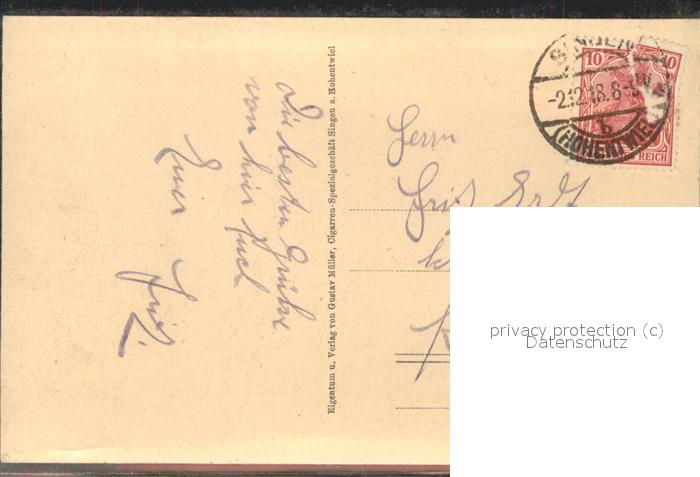 Die besten Grüße
von hier Euch
Euer Fritz
Eigentum u. Verlag von Gustav Müller, Cigarren-Spezialgeschäft Singen a. Hohentwiel
SINGEN
-2.12.18. 8-9 V.
b
(HOHENTWIEL)
10 10
REICH
Herrn
Fritz
privacy protection (c)
Datenschutz